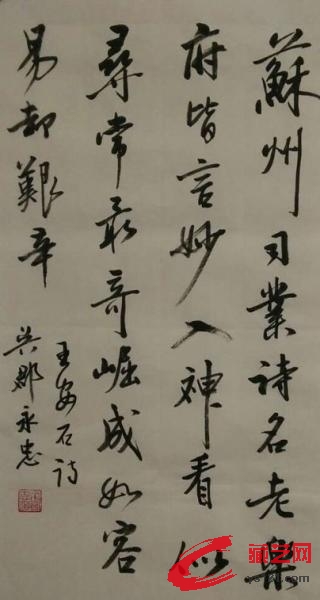 蘇州司業詩名老樂
府皆言妙入神看似
尋常最奇崛成如容
易却艱辛
王安石詩
吳郡永忠
藏艺网